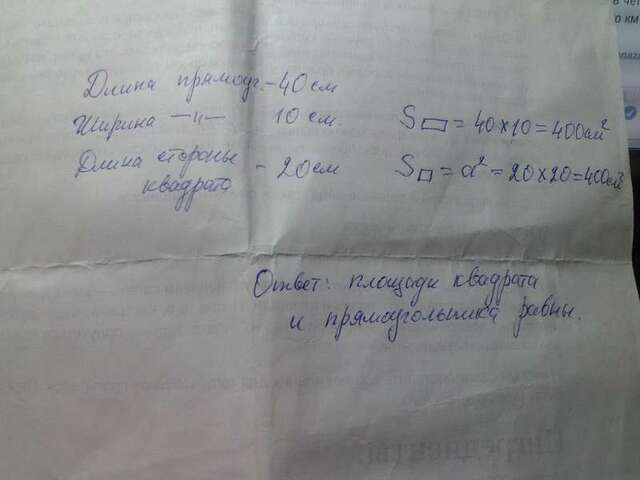 Длина прямоуг. - 40 см
Ширина —"— 10 см.
Длина стороны
квадрата - 20 см
S▭ = 40×10 = 400см²
S□ = a² = 20×20 = 400см²
Ответ: площади квадрата
и прямоугольника равны.